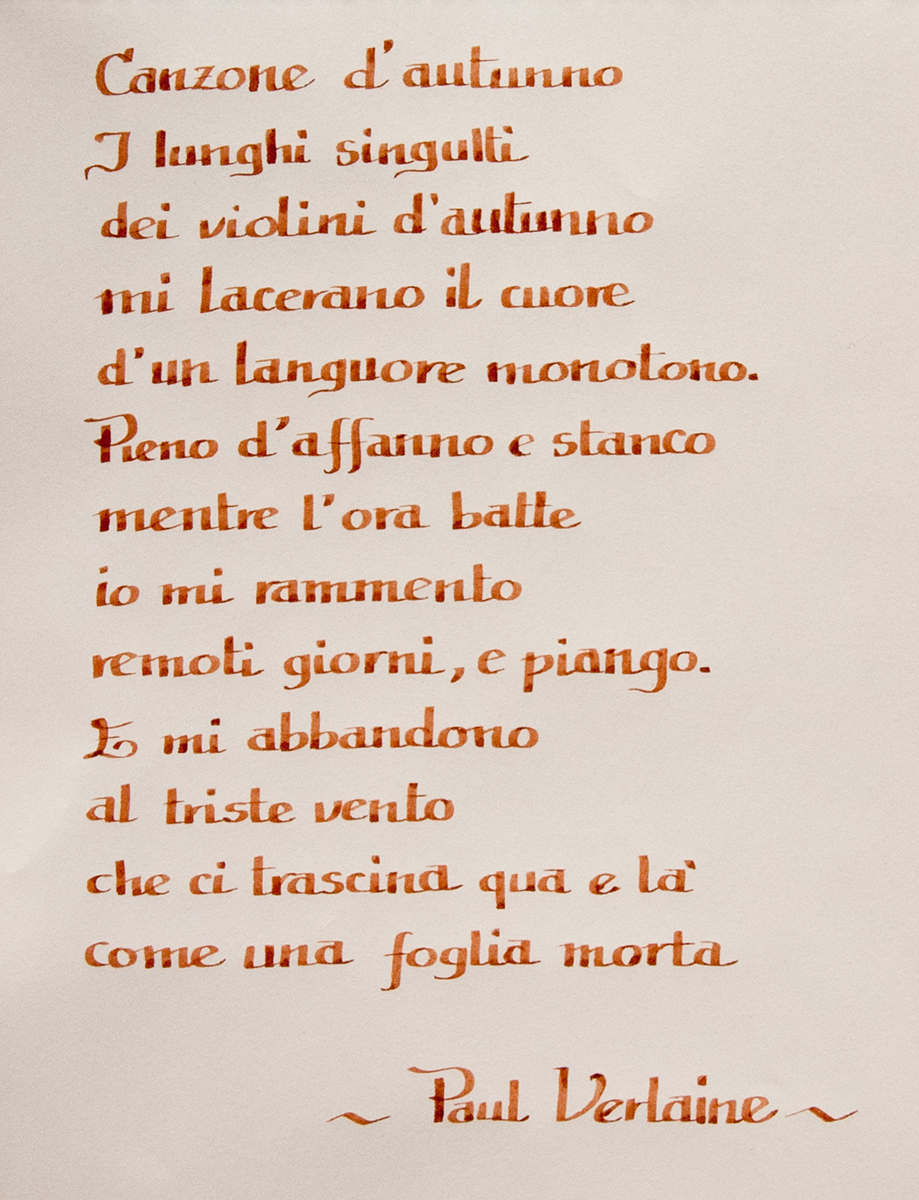 Canzone d'autunno
I lunghi singulti
dei violini d'autunno
mi lacerano il cuore
d'un languore monotono.
Pieno d'affanno e stanco
mentre l'ora batte
io mi rammento
remoti giorni, e piango.
E mi abbandono
al triste vento
che ci trascina qua e là
come una foglia morta
~ Paul Verlaine ~